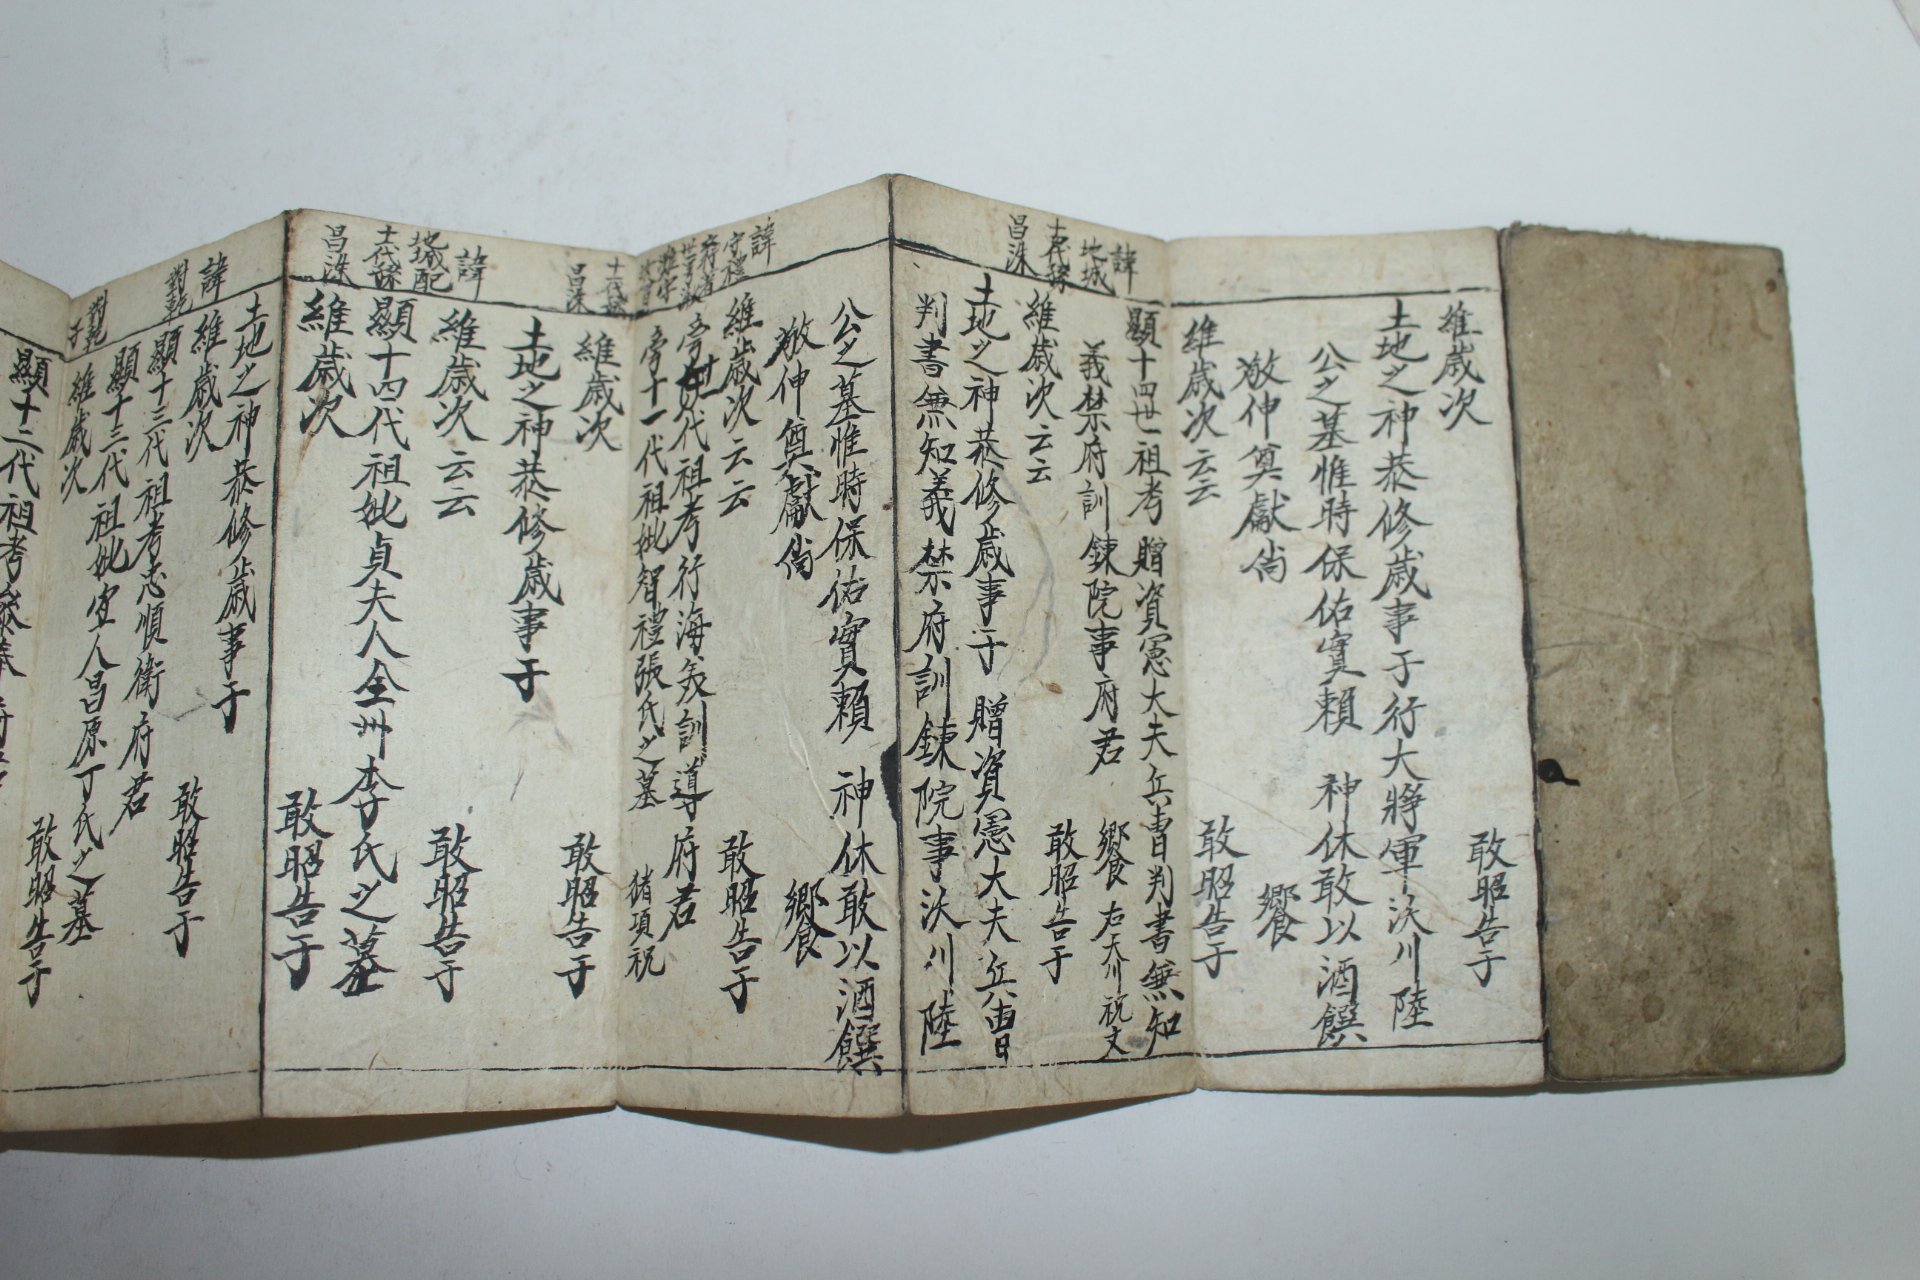 維歲次
敢昭告于
土地之神恭修歲事于行大將軍沃川陸
公之墓惟時保佑實賴 神休敢以酒饌
敬伸奠獻尙
饗
維歲次云云
敢昭告于
諱
顯十四世祖考 贈資憲大夫兵曹判書無知
地城
義禁府訓鍊院事府君
饗 右天川祝文
代孫
昌洙
維歲次云云
敢昭告于
土地之神恭修歲事于 贈資憲大夫兵曹
判書無知義禁府訓鍊院事沃川陸
公之墓惟時保佑實賴 神休敢以酒饌
敬伸奠獻尙
饗
諱
守禮
維歲次云云
敢昭告于
旁 代祖考行海美訓導府君
旁十一代祖妣智禮張氏之墓 猪項祝
昌洙
維歲次
敢昭告于
土地之神恭修歲事于
諱
地城配
維歲次云云
敢昭告于
代孫
顯十四代祖妣貞夫人全州李氏之墓
昌洙
維歲次
敢昭告于
土地之神恭修歲事于
諱
維歲次
敢昭告于
對乾
顯十三代祖考忠順衛府君
顯十三代祖妣宜人昌原丁氏之墓
對乾
子
維歲次
敢昭告于
顯十二代祖考